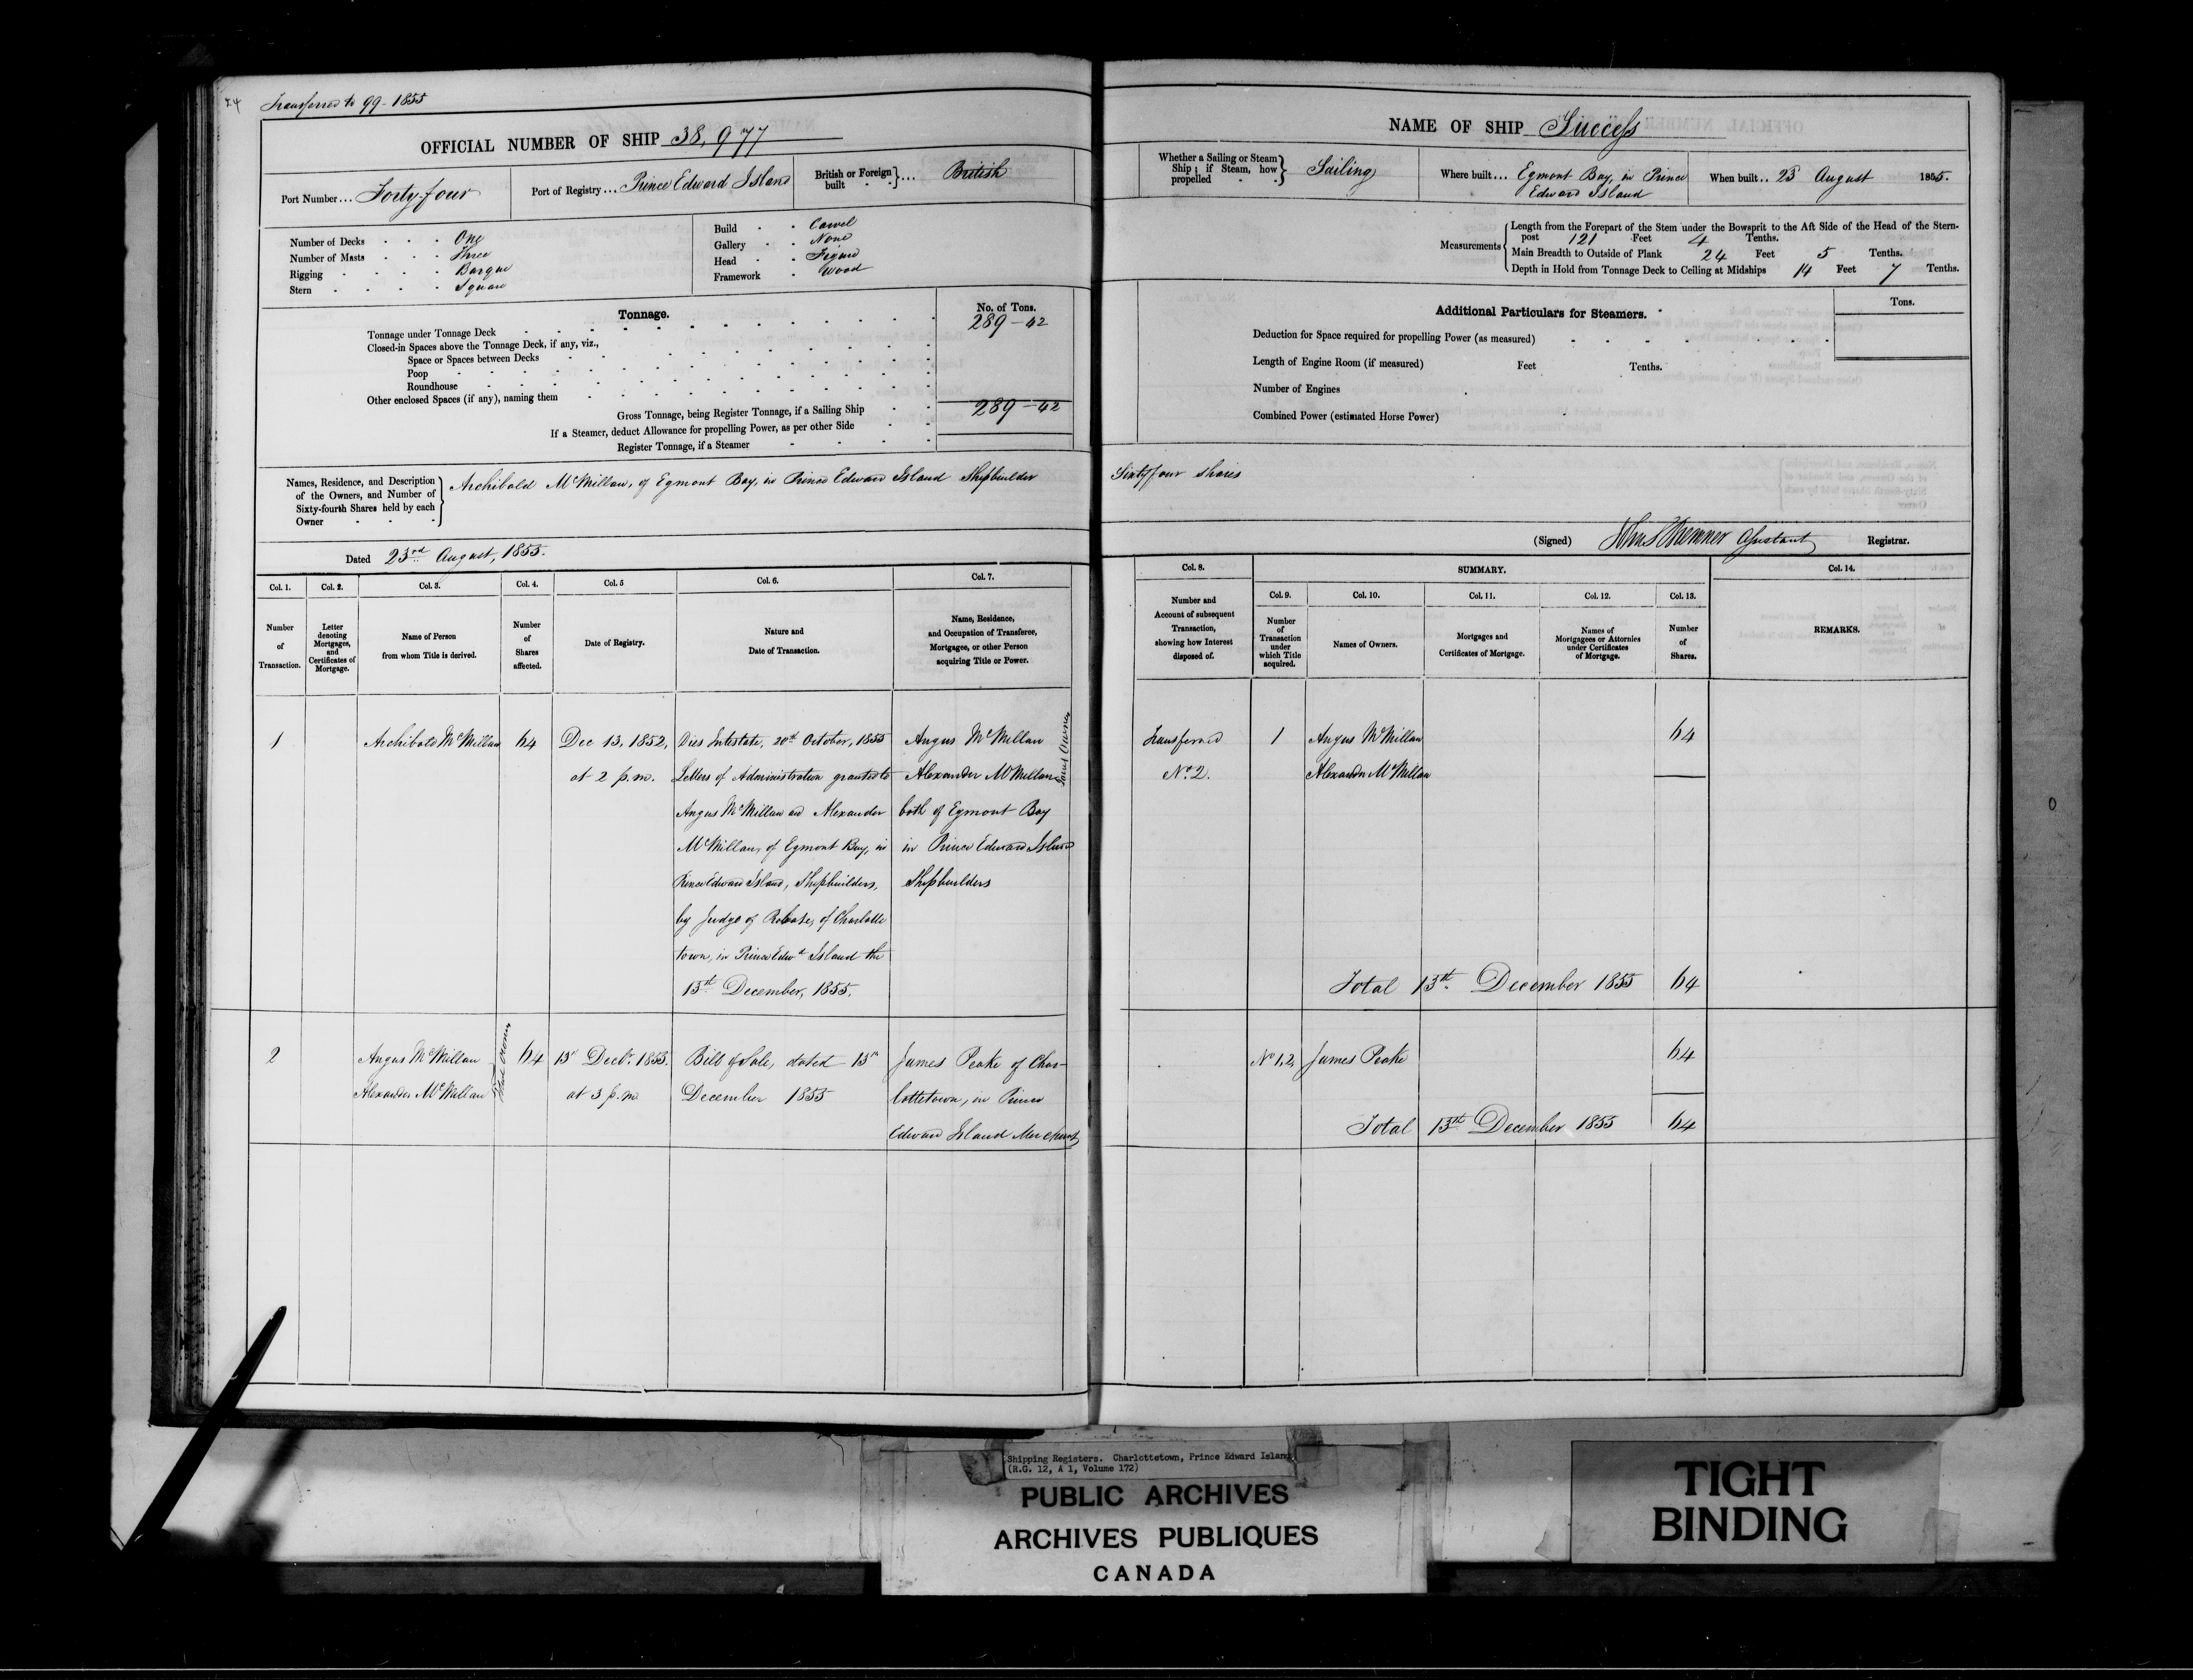 Transferred to 99-1855
OFFICIAL NUMBER OF SHIP 38,977
Port Number... Forty-four
Port of Registry... Prince Edward Island
British or Foreign built }... British
Number of Decks One
Number of Masts Three
Rigging Barque
Stern Square
Build Carvel
Gallery None
Head Figure
Framework Wood
Tonnage.
No. of Tons.
Tonnage under Tonnage Deck 289-42
Closed-in Spaces above the Tonnage Deck, if any, viz.,
Space or Spaces between Decks
Poop
Roundhouse
Other enclosed Spaces (if any), naming them
Gross Tonnage, being Register Tonnage, if a Sailing Ship 289-42
If a Steamer, deduct Allowance for propelling Power, as per other Side
Register Tonnage, if a Steamer
Names, Residence, and Description
of the Owners, and Number of
Sixty-fourth Shares held by each
Owner
Archibald McMillan, of Egmont Bay, in Prince Edward Island Shipbuilder
Dated 23rd August, 1855.
Col. 1. Col. 2. Col. 3. Col. 4. Col. 5 Col. 6. Col. 7.
Number of Transaction.
Letter denoting Mortgages, and Certificates of Mortgage.
Name of Person from whom Title is derived.
Number of Shares affected.
Date of Registry.
Nature and Date of Transaction.
Name, Residence, and Occupation of Transferee, Mortgagee, or other Person acquiring Title or Power.
1
Archibald McMillan
64
Dec 13, 1852,
at 2 p.m.
Dies Intestate, 20th October, 1855
Letters of Administration granted to
Angus McMillan and Alexander
McMillan, of Egmont Bay, in
Prince Edward Island, Shipbuilders,
by Judge of Probate, of Charlotte
town, in Prince Edwd Island the
13th December, 1855.
Angus McMillan
Alexander McMillan
both of Egmont Bay
in Prince Edward Island
Shipbuilders
Joint Owners
2
Angus McMillan
Alexander McMillan
Joint Owners
64
13th Decbr 1855.
at 3 p.m.
Bill of Sale, dated 13th
December 1855
James Peake of Char-
lottetown, in Prince
Edward Island Merchant
NAME OF SHIP Success
Whether a Sailing or Steam
Ship; if Steam, how
propelled
Sailing
Where built... Egmont Bay, in Prince
Edward Island
When built.. 23 August 1855.
Measurements
Length from the Forepart of the Stem under the Bowsprit to the Aft Side of the Head of the Stern-
post 121 Feet 4 Tenths.
Main Breadth to Outside of Plank 24 Feet 5 Tenths.
Depth in Hold from Tonnage Deck to Ceiling at Midships 14 Feet 7 Tenths.
Additional Particulars for Steamers.
Tons.
Deduction for Space required for propelling Power (as measured)
Length of Engine Room (if measured) Feet Tenths.
Number of Engines
Combined Power (estimated Horse Power)
Sixty four shares
(Signed) Assistant Registrar.
Col. 8.
SUMMARY.
Col. 14.
Col. 9. Col. 10. Col. 11. Col. 12. Col. 13.
Number and Account of subsequent Transaction, showing how Interest disposed of.
Number of Transaction under which Title acquired.
Names of Owners.
Mortgages and Certificates of Mortgage.
Names of Mortgagees or Attornies under Certificates of Mortgage.
Number of Shares.
REMARKS.
Transferred
No. 2.
1
Angus McMillan
Alexander McMillan
64
Total 13th December 1855 64
No 1,2, James Peake 64
Total 13th December 1855 64
Shipping Registers. Charlottetown, Prince Edward Island
(R.G. 12, A 1, Volume 172)
PUBLIC ARCHIVES
ARCHIVES PUBLIQUES
CANADA
TIGHT
BINDING